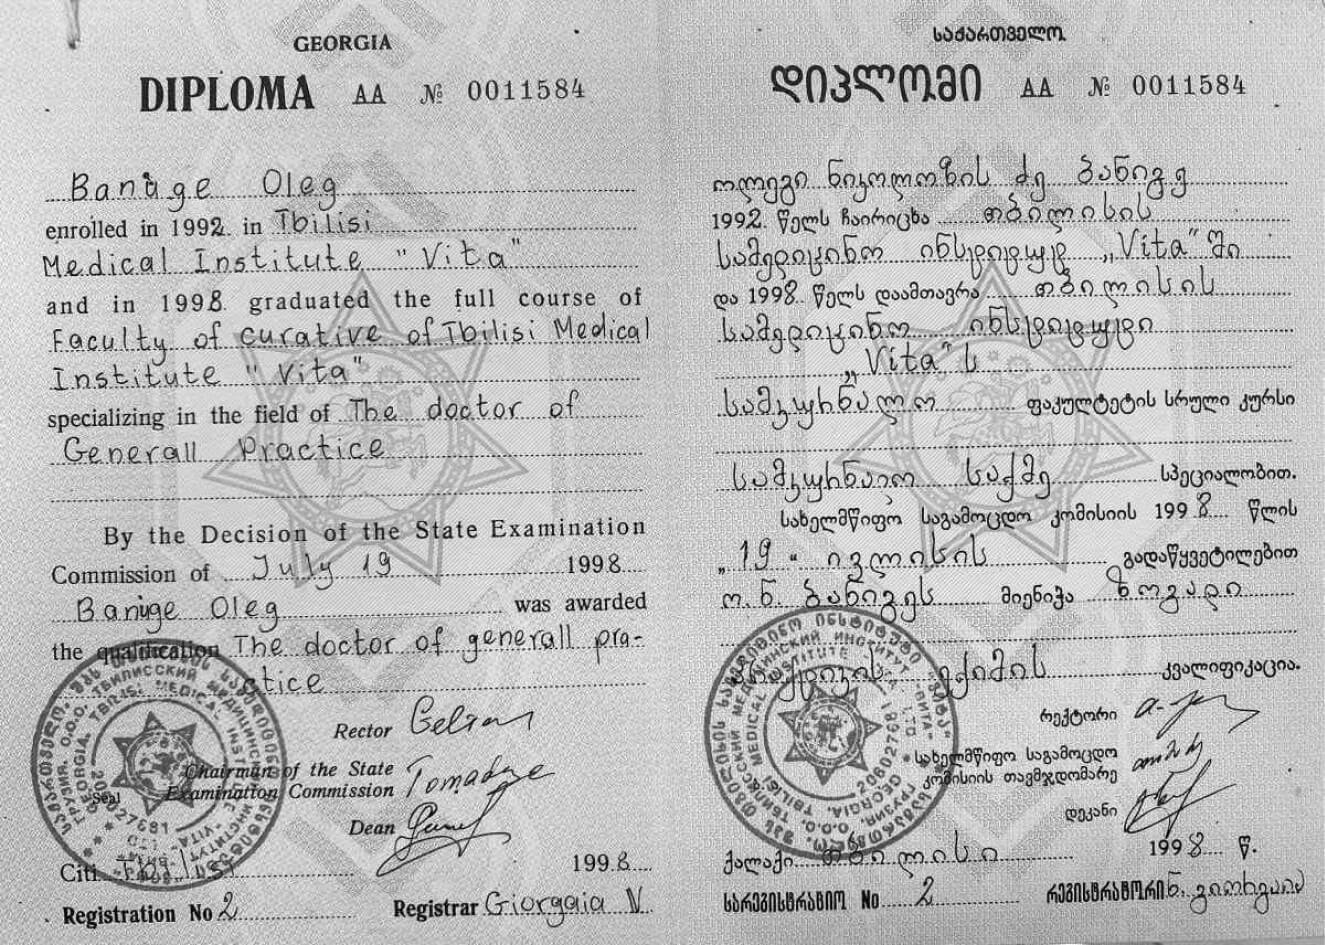 GEORGIA
DIPLOMA AA № 0011584
Banige Oleg
enrolled in 1992 in Tbilisi
Medical Institute "Vita"
and in 1998 graduated the full course of
Faculty of curative of Tbilisi Medical
Institute "Vita"
specializing in the field of The doctor of
Generall Practice
By the Decision of the State Examination
Commission of July 19 1998
Banige Oleg was awarded
the qualification The doctor of generall pra-
ctice
Rector
Chairman of the State
Examination Commission
Dean
Seal
Citi Tbilisi 1998
Registration No 2 Registrar Giorgaia N
საქართველო
დიპლომი AA № 0011584
ოლეგი ნიკოლოზის ძე ბანიგე
1992 წელს ჩაირიცხა თბილისის
სამედიცინო ინსტიტუტ „Vita"ში
და 1998 წელს დაამთავრა თბილისის
სამედიცინო ინსტიტუტი
„Vita"ს
სამკურნალო ფაკულტეტის სრული კურსი
სამკურნალო საქმე სპეციალობით.
სახელმწიფო საგამოცდო კომისიის 1998 წლის
„19" ივლისის გადაწყვეტილებით
ო.ნ. ბანიგეს მიენიჭა ზოგადი
პრაქტიკის ექიმის კვალიფიკაცია.
რექტორი
სახელმწიფო საგამოცდო
კომისიის თავმჯდომარე
დეკანი
ქალაქი თბილისი 1998 წ.
სარეგისტრაციო No 2 რეგისტრატორი ნ. გიორგაია